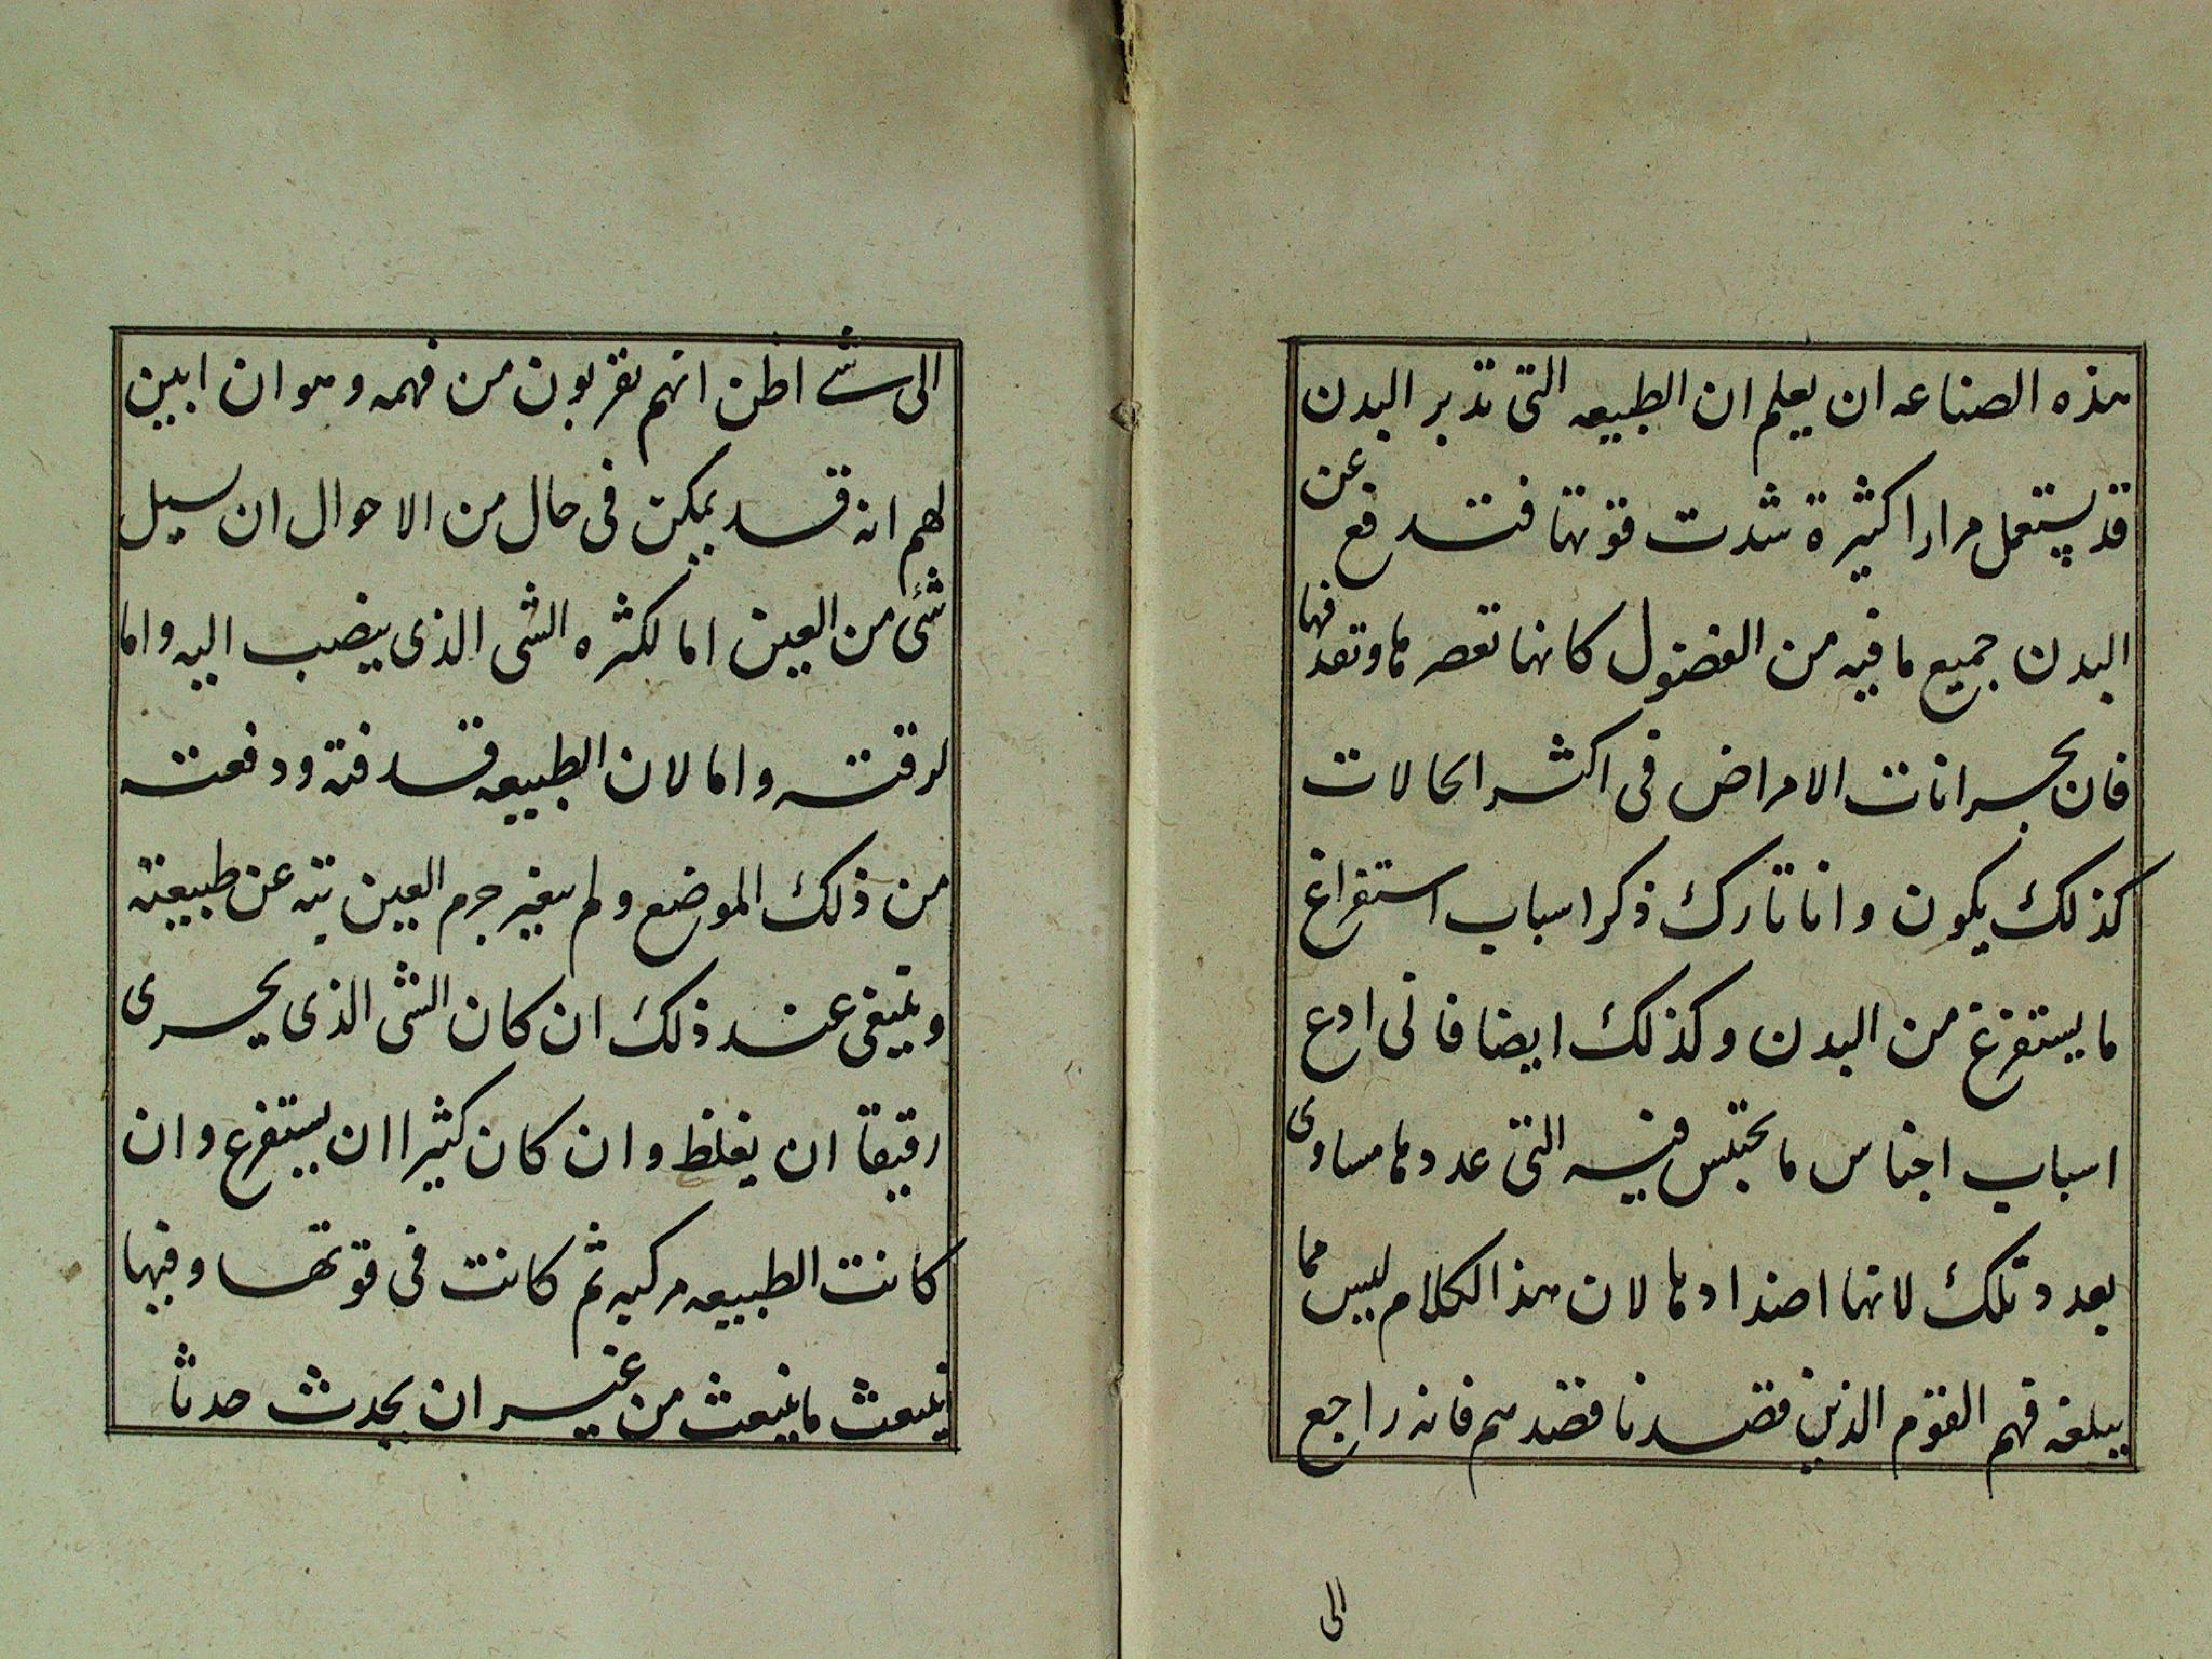 هذه الصناعه ان يعلم ان الطبيعه التى تدبر البدن
قد يستعمل مرارا كثيرة شدت قوتها فتدفع عن
البدن جميع ما فيه من الفضول كانها تعصرها وتقذفها
فان بحرانات الامراض فى اكثر الحالات
كذلك يكون وانا تارك ذكر اسباب استفراغ
ما يستفرغ من البدن وكذلك ايضا فانى ادع
اسباب اجناس ما يحتبس فيه التى عددها مساوى
بعدد تلك لانها اضدادها لان هذا الكلام ليس مما
يبلغه فهم القوم الذين قصدنا قصدهم فانه راجع
الى
الى شے اظن انهم يقربون من فهمه وهو ان ابين
لهم انه قد يمكن فى حال من الاحوال ان سيل
شئ من العين اما لكثره الشى الذى ينصب اليه واما
لرقته واما لان الطبيعه قدفته ودفعته
من ذلك الموضع ولم يغير جرم العين بته عن طبيعته
وينبغى عند ذلك ان كان الشى الذى يجرى
رقيقا ان يغلظ وان كان كثيرا ان يستفرغ وان
كانت الطبيعه مركبه ثم كانت فى قوتها وفيها
ينبعث ما ينبعث من غير ان يحدث حدثا